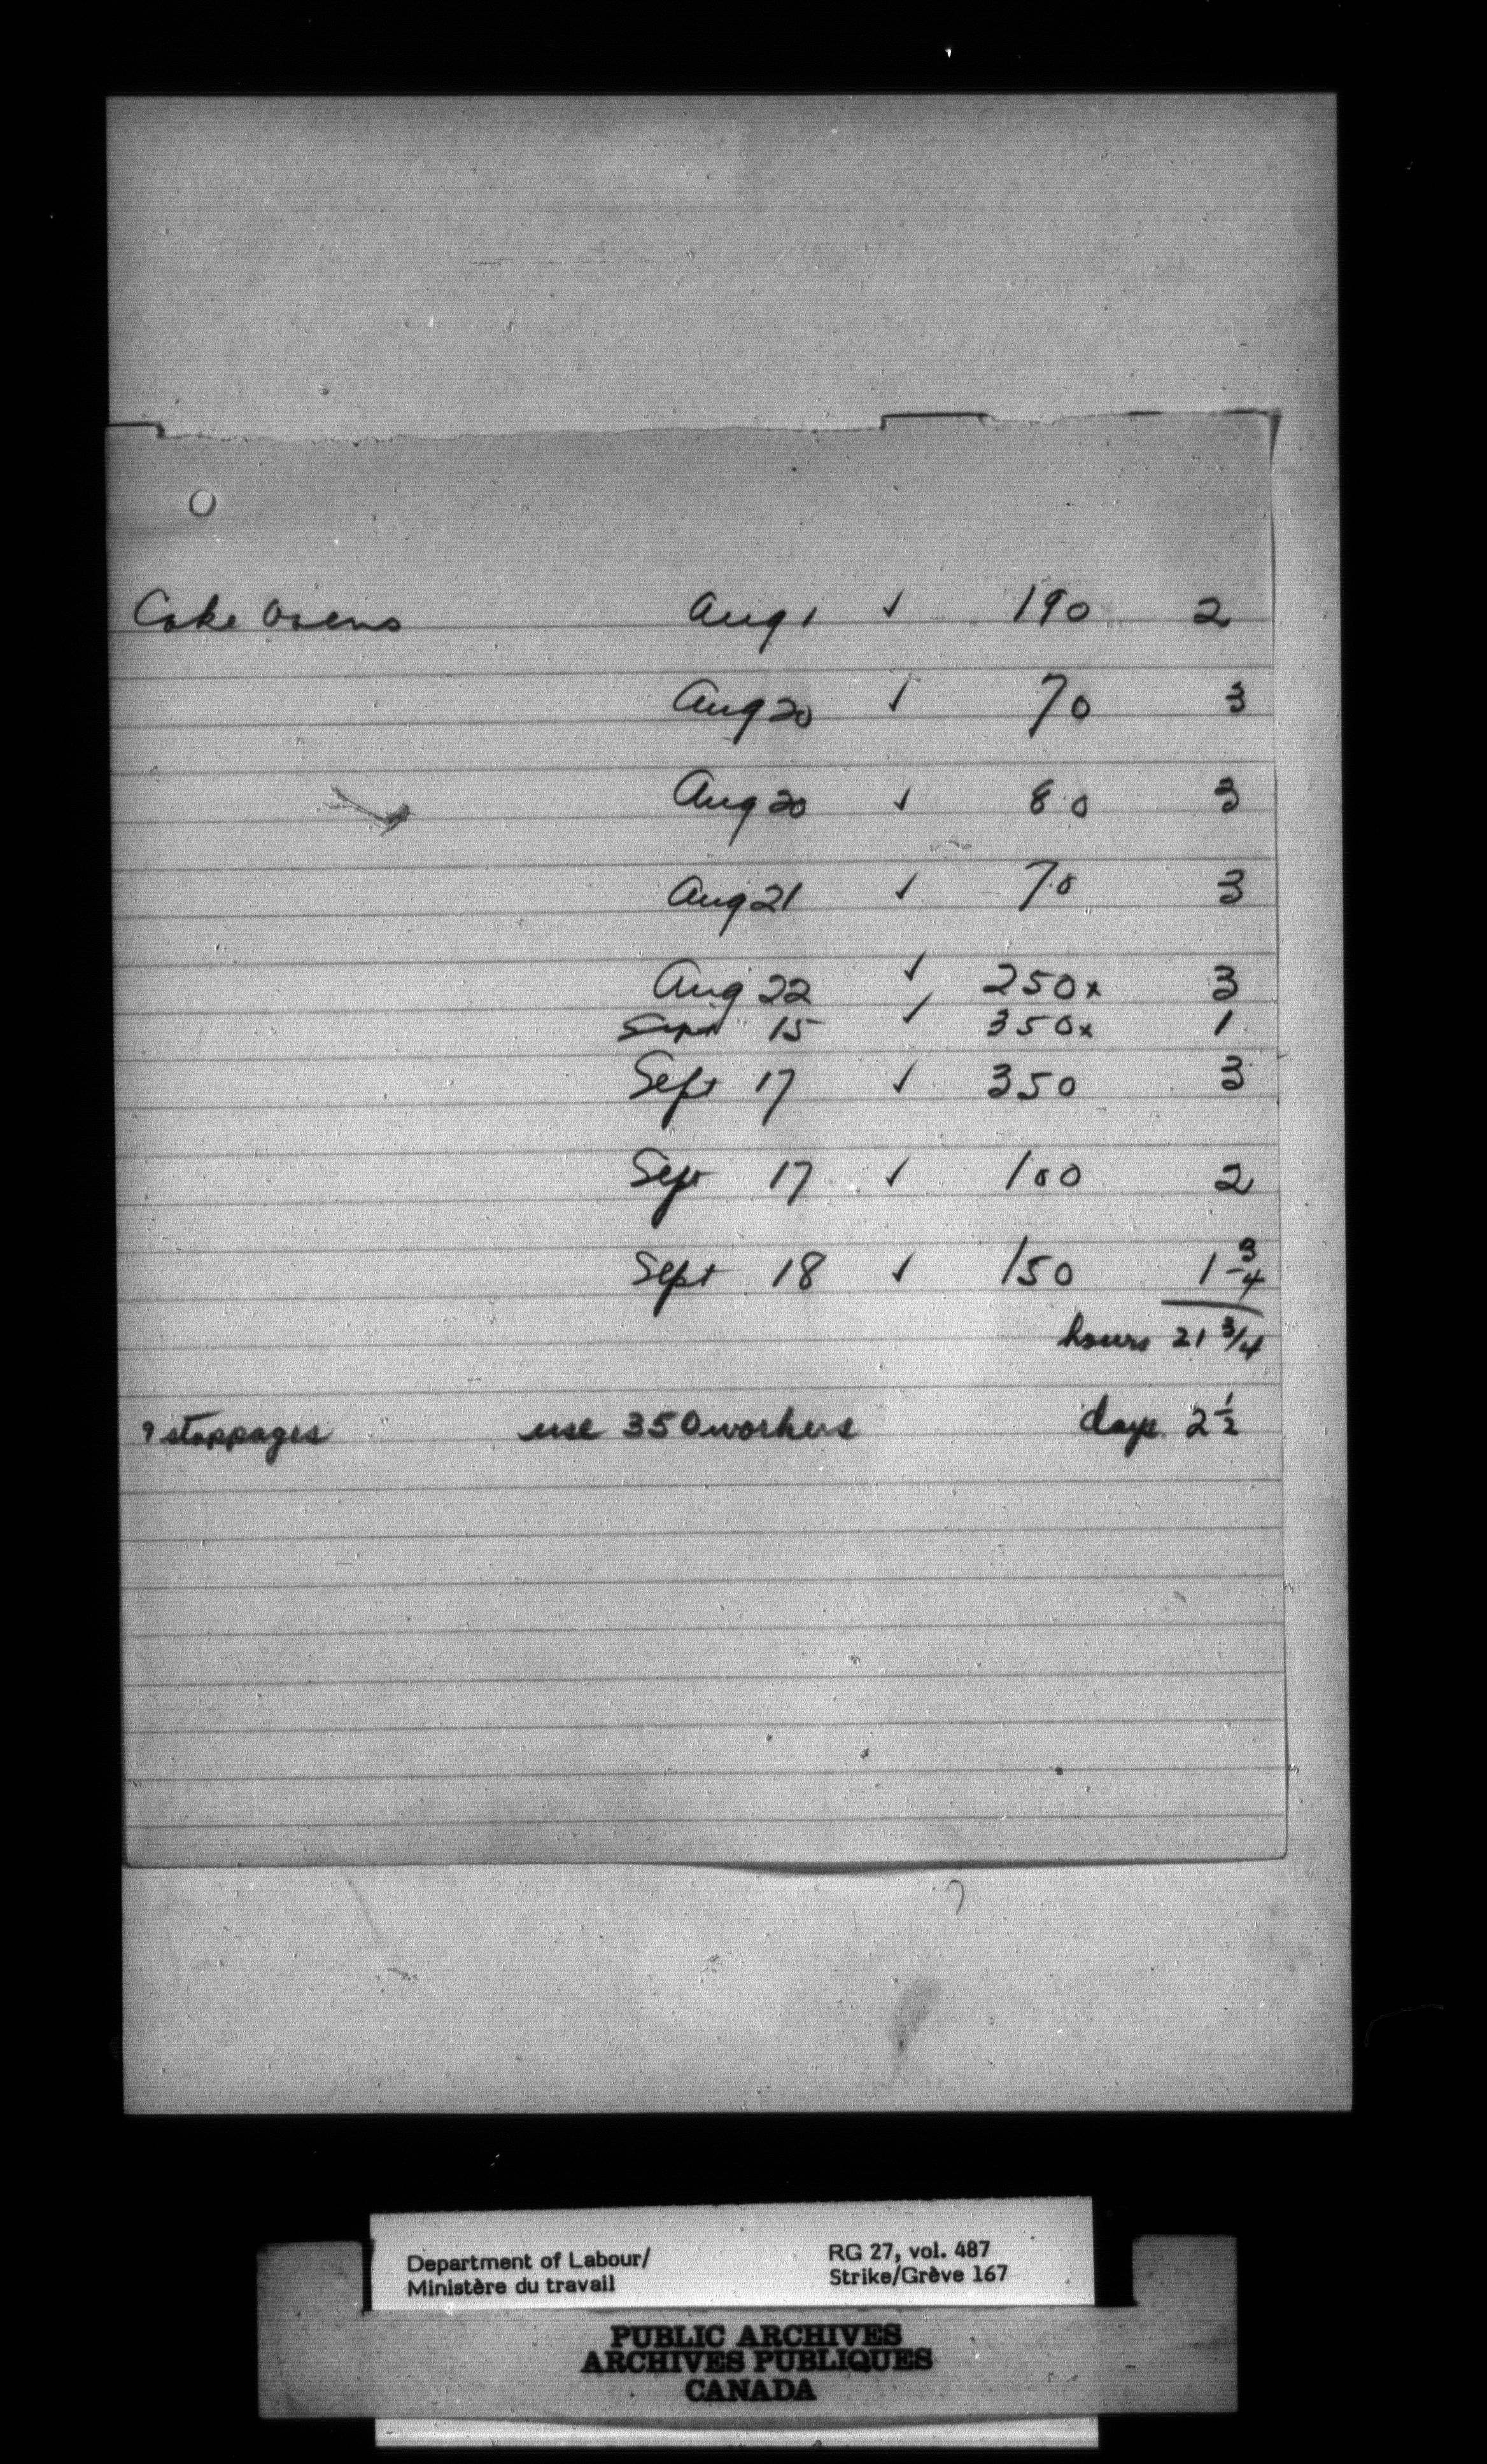 Coke Ovens Aug 1 ✓ 190 2
Aug 20 ✓ 70 3
Aug 20 ✓ 80 3
Aug 21 ✓ 70 3
Aug 22 ✓ 250x 3
Sept 15 ✓ 350x 1
Sept 17 ✓ 350 3
Sept 17 ✓ 100 2
Sept 18 ✓ 150 1 3/4
hours 21 3/4
9 stoppages use 350 workers days 2 1/2
Department of Labour/ RG 27, vol. 487
Ministère du travail Strike/Grève 167
PUBLIC ARCHIVES
ARCHIVES PUBLIQUES
CANADA